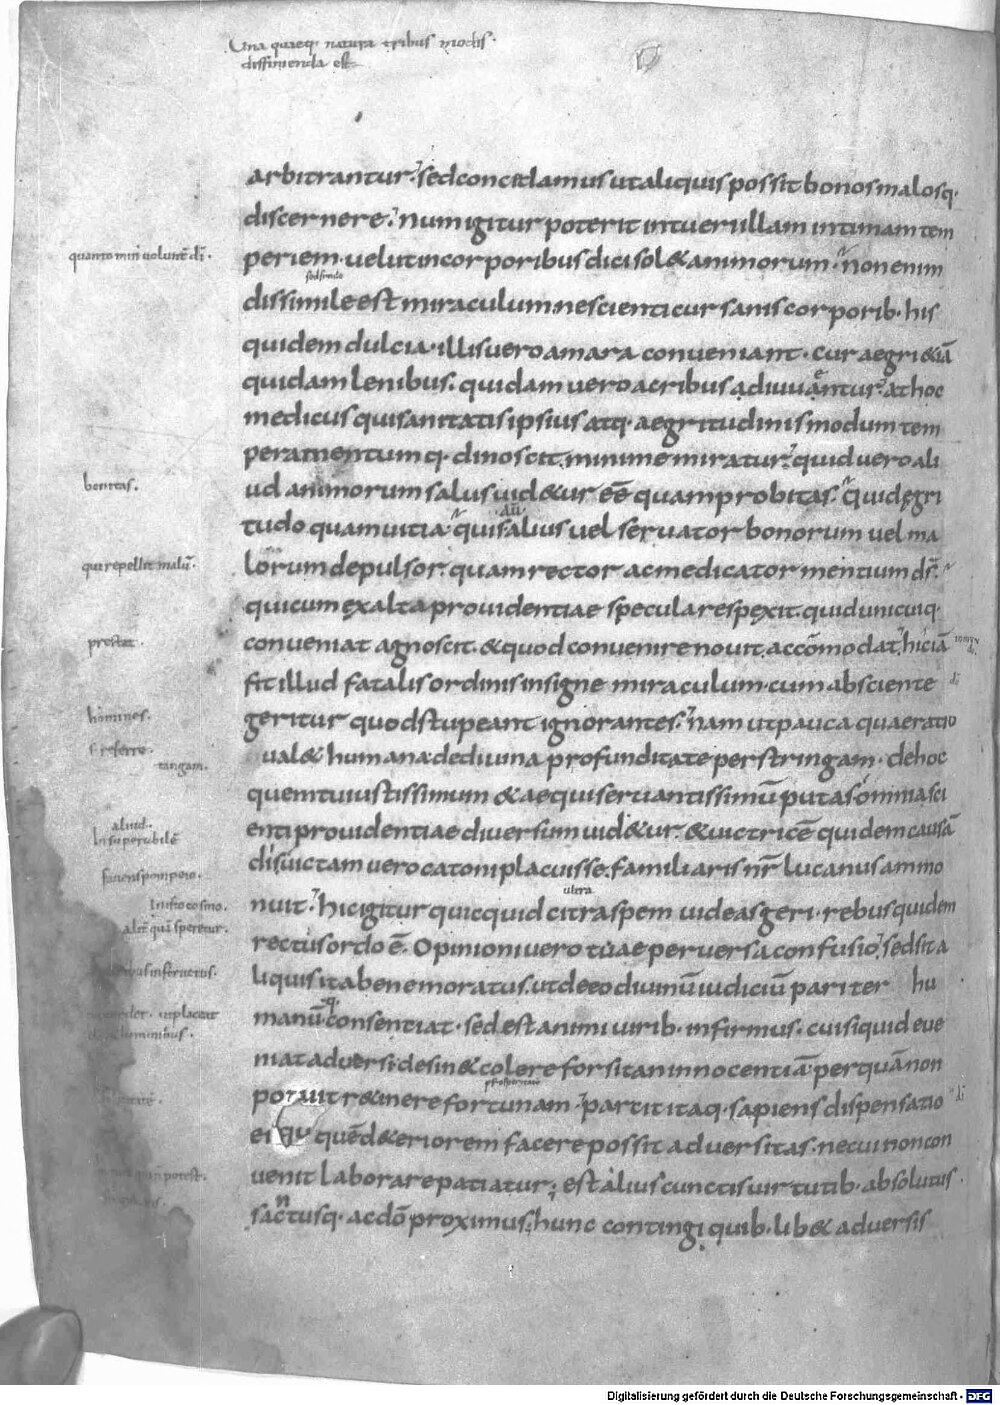 Una quaeq· natura tribus modis·
diffinienda est
arbitrantur? sed concedamus ut aliquis possit bonos malosq·
discernere? num igitur poterit intueri illam intimam tem
periem· velut in corporibus dici sol& animorum· non enim
dissimile est miraculum nescienti cur sanis corporib· his
quidem dulcia· illis vero amara conveniant· cur aegri &iā
quidam lenibus· quidam vero acribus adiuvantur? at hoc
medicus qui sanitatis ipsius atq· aegritudinis modum tem
peramentumq· dinoscit minime miratur? quid vero ali
ud animorum salus vid&ur eē quam probitas? quid ęgri
tudo quam vitia· quis alius vel servator bonorum vel ma
lorum depulsor· quam rector ac medicator mentium ds̄?
qui cum ex alta providentiae specula respexit· quid unicuiq·
conveniat agnoscit· & quod convenire novit accōmodat? hic iā
fit illud fatalis ordinis insigne miraculum· cum ab sciente
geritur quod stupeant ignorantes? nam ut pauca quae ratio
val& humana· de divina profunditate perstringam· de hoc
quem tu iustissimum & aequi servantissimū putas omnia sci
enti providentiae diversum vid&ur· & victricē quidem causā
dis· victam vero catoni placuisse· familiaris nr̄ lucanus ammo
nuit? hic igitur quicquid citra spem videas geri· rebus quidem
rectus ordo ē· Opinioni vero tuae perversa confusio? sed sit a
liquis ita bene moratus· ut de eo divinū iudiciū pariter hu
manūq· consentiat· sed est animi virib· infirmus· cui si quid eve
niat adversi· desin& colere forsitan innocentiā per quā non
potuit r&inere fortunam? parcit itaq· sapiens dispensatio
ei quē d&eriorem facere possit adversitas· ne cui non con
venit laborare patiatur; est alius cunctis virtutib· absolutus
sanctusq· ac dō proximus; hunc contingi quib· lib& adversis
bonitas·
qui repellit malū·
prestat·
homines·
tangam·
aliud·
insuperabilē
ultra
Digitalisierung gefördert durch die Deutsche Forschungsgemeinschaft - DFG